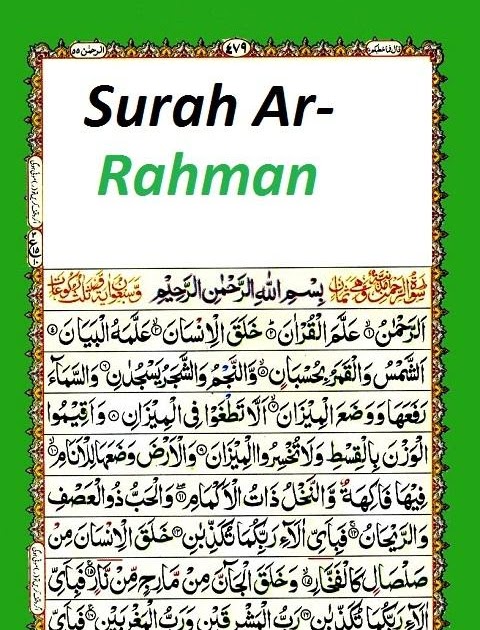 الرحمن ٥٥ ٤٧٩ قال فما خطبكم
Surah Ar-
Rahman
سورة الرحمن مدنية وهي ثمان بِسْمِ اللهِ الرَّحْمٰنِ الرَّحِيْمِ وسبعون اية وثلث ركوعات
اَلرَّحْمٰنُ ۙ۱ عَلَّمَ الْقُرْاٰنَ ؕ۲ خَلَقَ الْاِنْسَانَ ۙ۳ عَلَّمَهُ الْبَيَانَ ۴
اَلشَّمْسُ وَالْقَمَرُ بِحُسْبَانٍ ۵ وَّالنَّجْمُ وَالشَّجَرُ يَسْجُدٰنِ ۶ وَالسَّمَآءَ
رَفَعَهَا وَوَضَعَ الْمِيْزَانَ ۷ اَلَّا تَطْغَوْا فِى الْمِيْزَانِ ۸ وَاَقِيْمُوا
الْوَزْنَ بِالْقِسْطِ وَلَا تُخْسِرُوا الْمِيْزَانَ ۹ وَالْاَرْضَ وَضَعَهَا لِلْاَنَامِ ۱۰
فِيْهَا فَاكِهَةٌ وَّالنَّخْلُ ذَاتُ الْاَكْمَامِ ۱۱ وَالْحَبُّ ذُو الْعَصْفِ
وَالرَّيْحَانُ ۱۲ فَبِاَىِّ اٰلَآءِ رَبِّكُمَا تُكَذِّبٰنِ ۱۳ خَلَقَ الْاِنْسَانَ مِنْ
صَلْصَالٍ كَالْفَخَّارِ ۱۴ وَخَلَقَ الْجَآنَّ مِنْ مَّارِجٍ مِّنْ نَّارٍ ۱۵ فَبِاَىِّ
اٰلَآءِ رَبِّكُمَا تُكَذِّبٰنِ ۱۶ رَبُّ الْمَشْرِقَيْنِ وَرَبُّ الْمَغْرِبَيْنِ ۱۷ فَبِاَىِّ